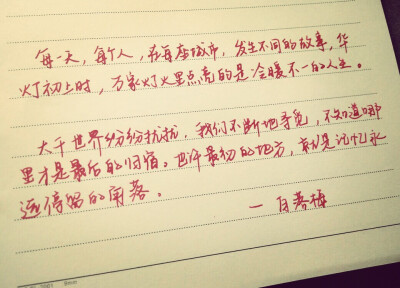 每一天，每个人，在每座城市，发生不同的故事，华
灯初上时，万家灯火里点亮的是冷暖不一的人生。
大千世界纷纷扰扰，我们不断地寻觅，不知道哪
里才是最后的归宿。也许最初的地方，就是记忆永
远停留的角落。
一 白落梅